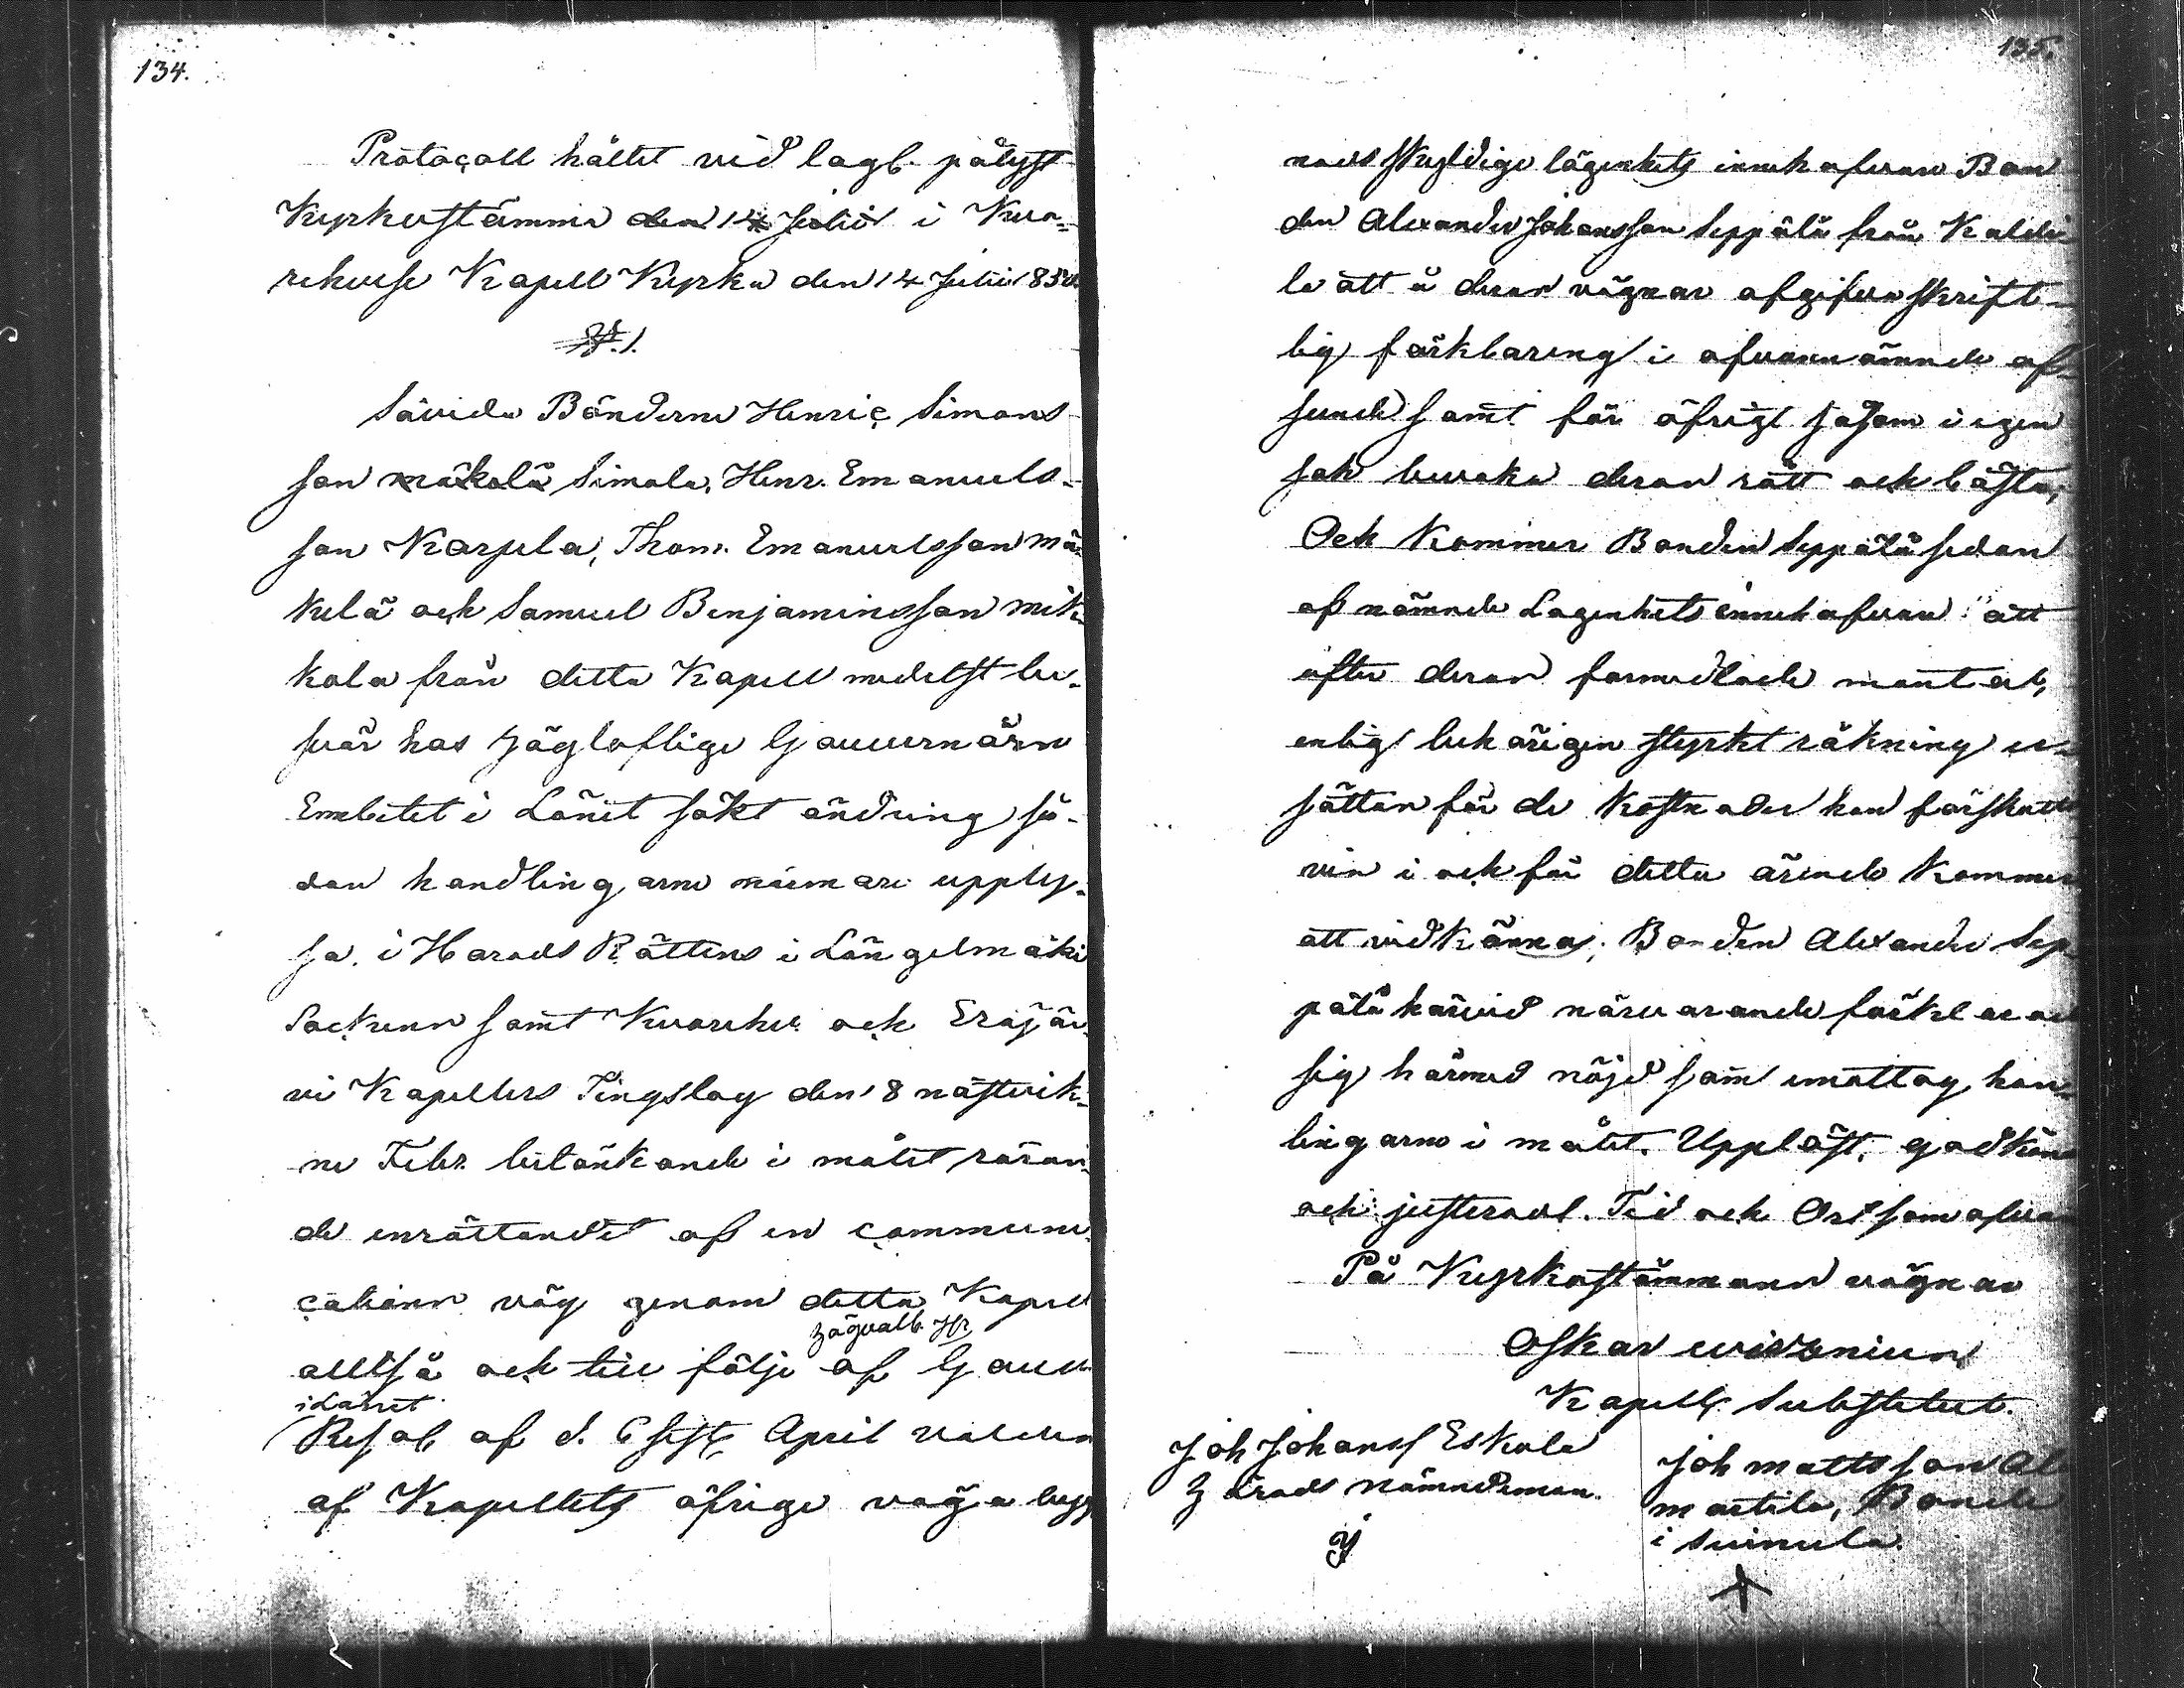 134.
Protocoll hållet vid lagl. pålyst
Kyrkostämma den 14 Julii i Kuo-
rehvesi Kapell Kyrka den 14 Julii 185
§. 1.
Såvida Bönderne Henric Simons
son mäkelä Simola, Henr. Emanuels-
son Karpela, Thom. Emanuelsson Mä-
kelä och Samuel Benjaminsson Mik-
kola från detta Kapell medelst be-
svär hos Högloflige Gouvernörs
Embetet i Länet sökt ändring så-
dan handlingarne närmare upply-
sa, i Härads Rättens i Längelmäki
Sockens samt Kuorehv. och Eräjär-
vi Kapellers Tingslag den 8 nästvik-
ne Febr. betänkande i målet röran-
de inrättandet af en commun-
cations väg genom detta Kapell
Högvälb. Hr
alltså och till följe af Gouv.
i Länet
Resol. af d. 6 sistl. April valdes
af Kapellets öfrige väga bygg
135.
nads skyldige lägenhets innehafvare Bon
den Alexander Johansson Seppälä från
la att å deras vägnar afgifva skrift-
lig förklaring i ofvannämnde af-
seende samt för öfrigt såsom i egen
sak bevaka deras rätt och bästa,
Och kommer Bonden Seppälä sedan
af nämnde Lägenhets innehafvare att
efter deras förmedlade mantal,
enlig behörigen styrkt räkning er-
sättas för de kostnader han förskotts
vis i och för detta ärende kommer
att vidkännas; Bonden Alexander Sep
pälä härvid närvarande förklarade
sig härmed nöjd som emottog han
lingarne i målet. Uppläst, godkän
och justerad. Tid och Ort som ofvan
På Kyrkostämmans vägnar
Oskar
Kapells Substitut.
Joh Johans Eskola
Härads Nämndeman.
Joh Mattsson Al
Martila, Bonde
i Suinula.